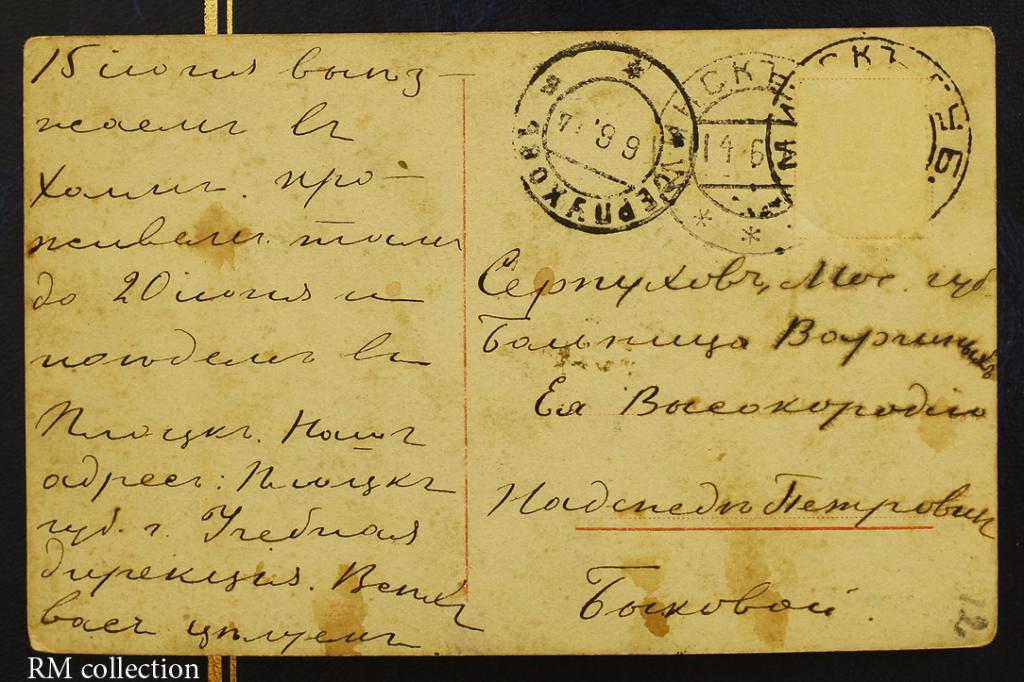 15 іюня выѣз-
жаемъ въ
Холмъ. про-
живемъ тамъ
до 20 іюня и
поѣдемъ въ
Плоцкъ. Нашъ
адресъ: Плоцкъ
губ. г. Учебная
дирекція. Всѣхъ
васъ цѣлуемъ.
СЕРПУХОВЪ
МИНСКЪ ГУБ.
14 6
Серпуховъ, Мос. губ.
Больница Варгиныхъ
Ея Высокородію
Надеждѣ Петровнѣ
Быковой
12
RM collection